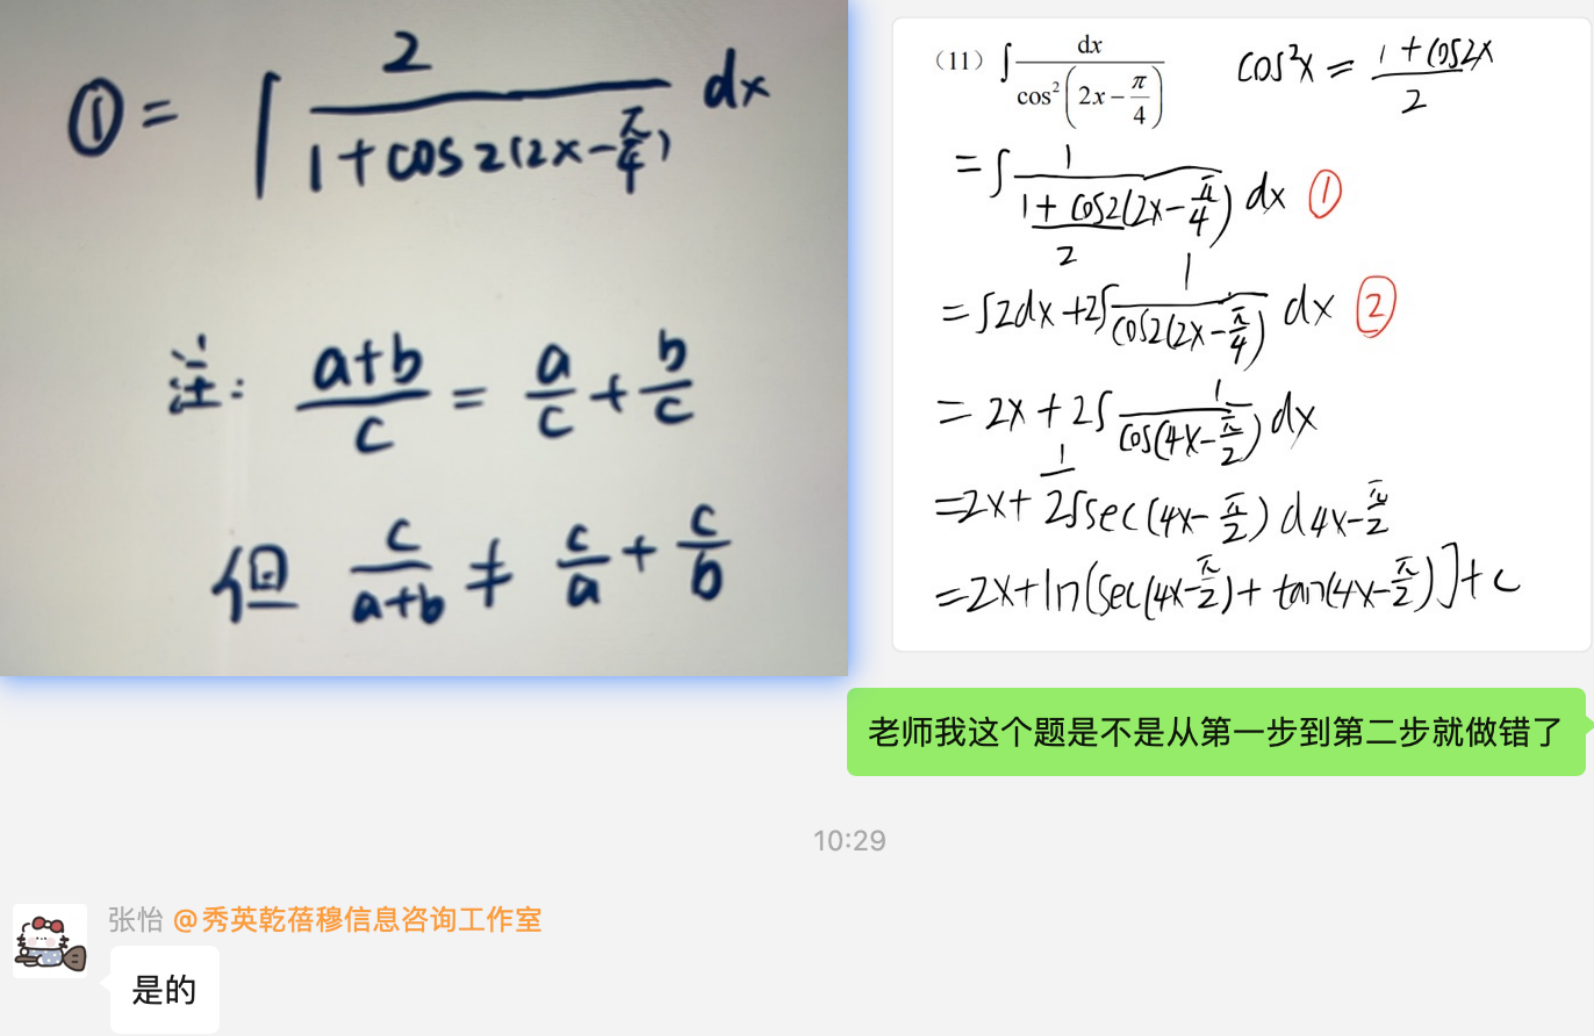 ① = ∫ 2/(1+cos2(2x-π/4)) dx
注: (a+b)/c = a/c + b/c
但 c/(a+b) ≠ c/a + c/b
(11) ∫ dx/cos²(2x-π/4)
cos²x = (1+cos2x)/2
= ∫ 1/((1+cos2(2x-π/4))/2) dx ①
= ∫2dx +2∫ 1/cos2(2x-π/4) dx ②
= 2x + 2∫ 1/cos(4x-π/2) dx
=2x+ 1/2∫sec(4x-π/2) d4x-π/2
=2x+ln[sec(4x-π/2)+tan(4x-π/2)]+c
老师我这个题是不是从第一步到第二步就做错了
10:29
张怡 @秀英乾蓓穆信息咨询工作室
是的